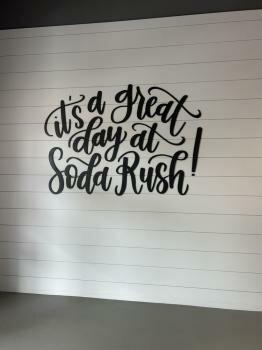 it's a great
day at
Soda Rush!